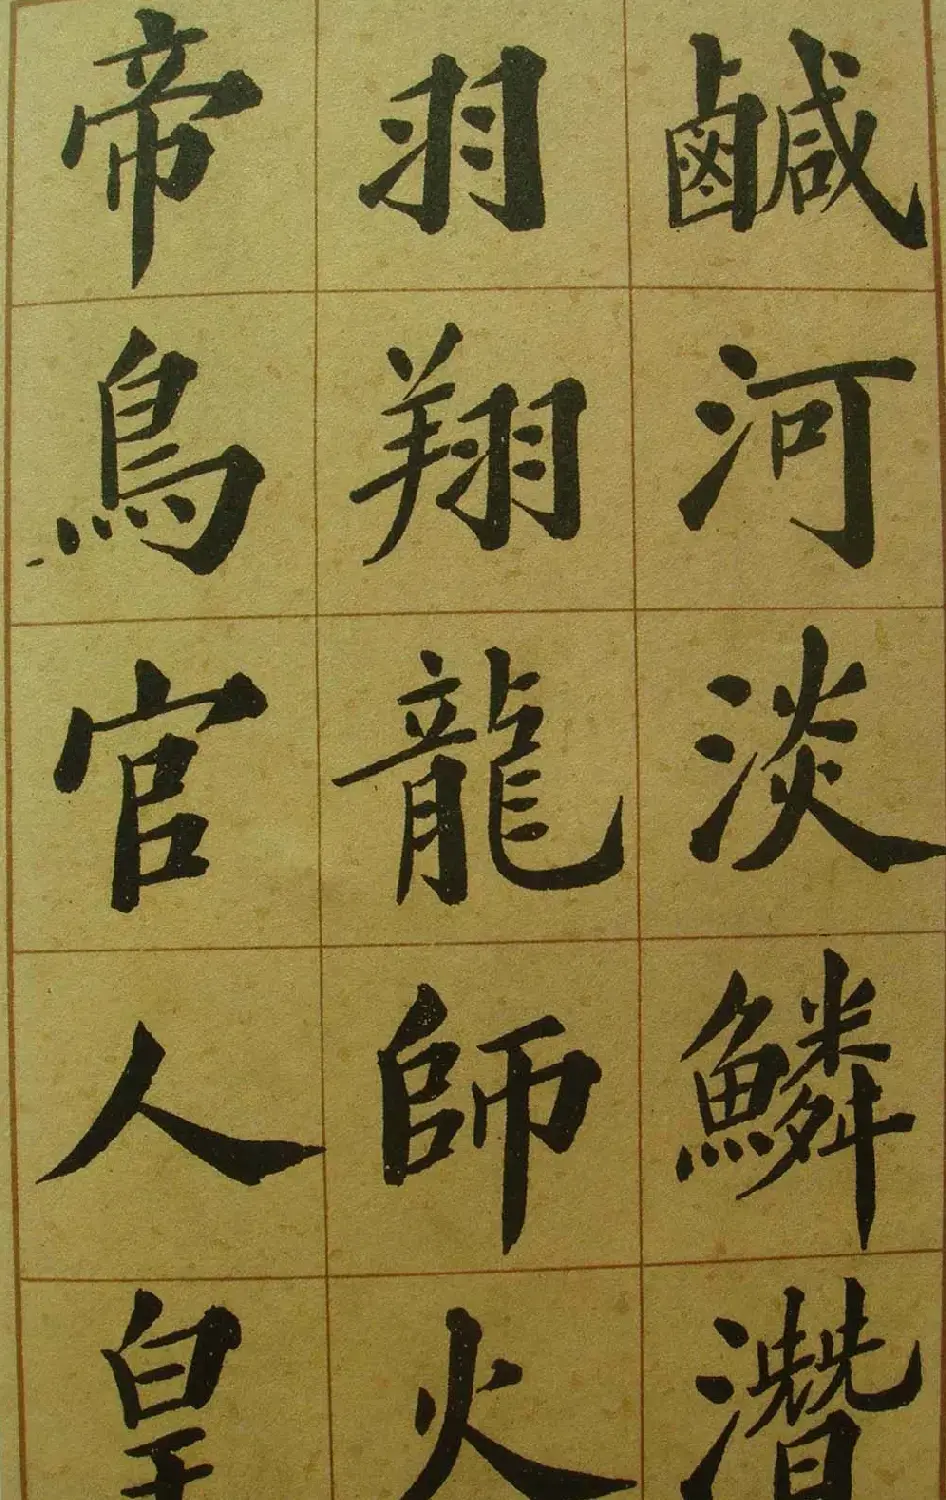 鹹河淡鱗潛
羽翔龍師火
帝鳥官人皇